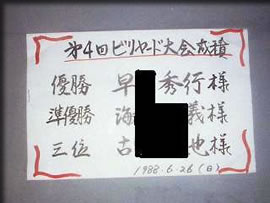 第4回ビリヤード大会成積
優勝 早 秀行様
準優勝 海 義様
三位 古 也様
1988.6.26(日)